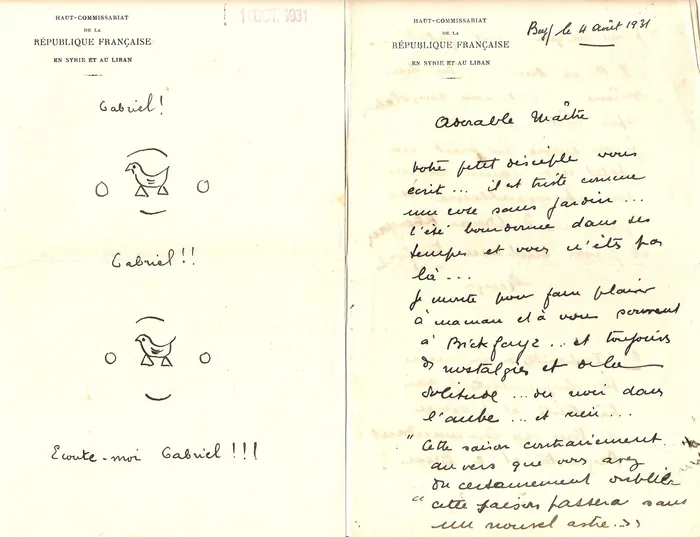 HAUT-COMMISSARIAT
DE LA
RÉPUBLIQUE FRANÇAISE
EN SYRIE ET AU LIBAN
1 OCT. 1931
Gabriel!
Gabriel!!
Ecoute-moi Gabriel!!!
HAUT-COMMISSARIAT
DE LA
RÉPUBLIQUE FRANÇAISE
EN SYRIE ET AU LIBAN
Bey/ le 4 Août 1931
Adorable Maître
Votre petit disciple vous
écrit... il est triste comme
une rose sans jardin...
l'été bourdonne dans ses
tempes et vous n'êtes pas
là...
Je monte pour faire plaisir
à maman et à vous souvent
à Bickfaya... et toujours
de nostalgies et de la
solitude... du noir dans
l'aube... et rien...
"Cette saison contrairement
au vers que vous avez
du certainement oublier
"cette saison passera sans
un nouvel astre...